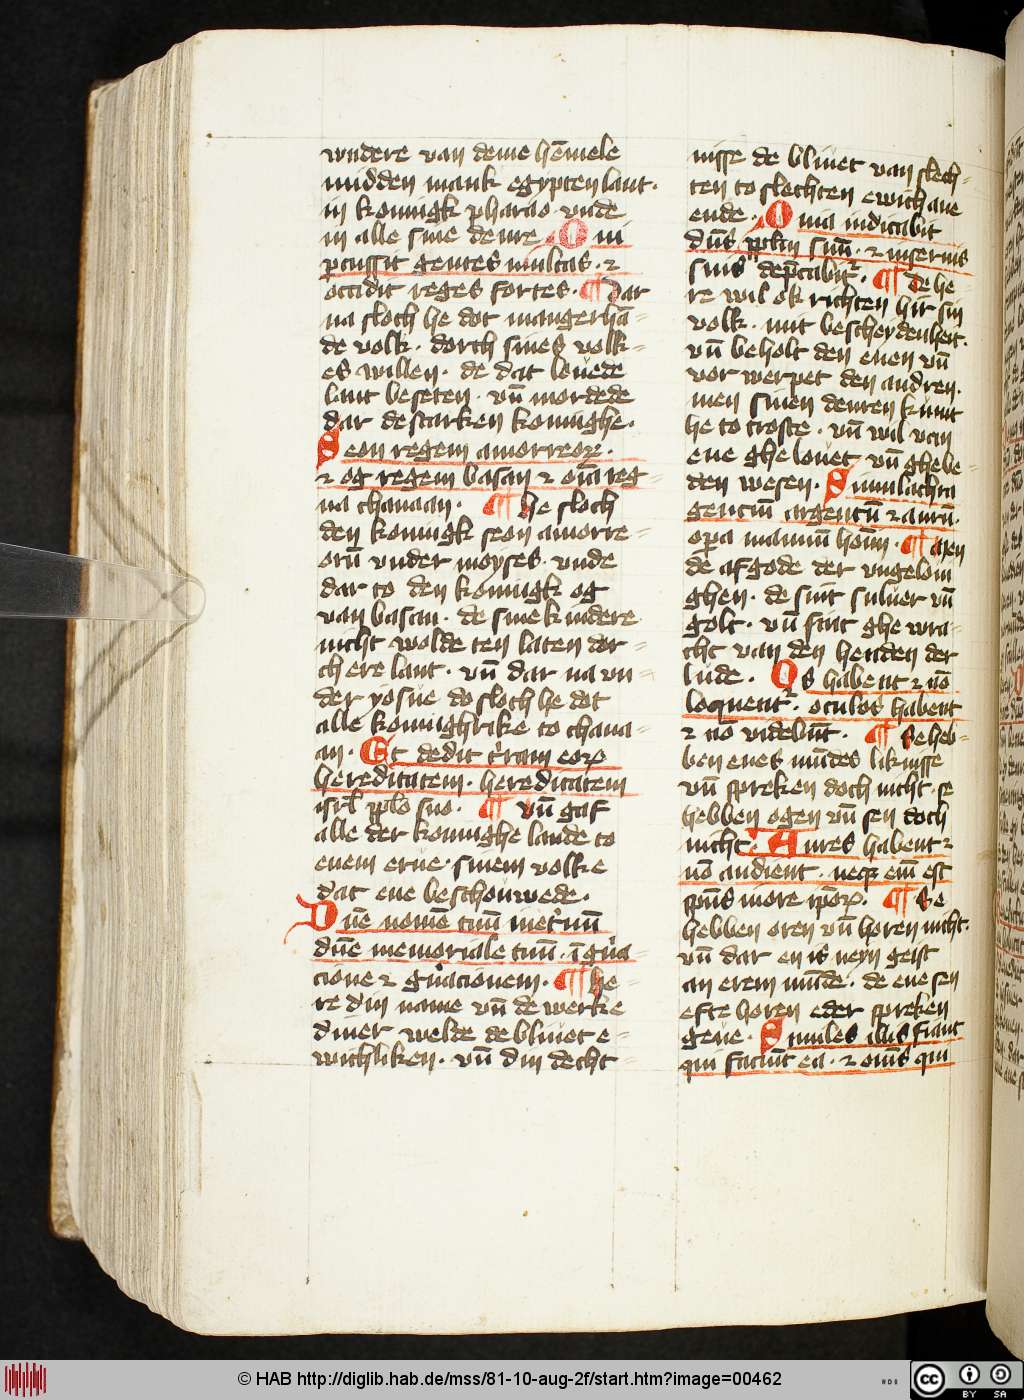 wndere van deme hēmele
midden mank egypten lant.
in konnigk pharao vnde
in alle sine denre. Qui
ꝑcussit gentes multas. ⁊
occidit reges fortes. ¶ Dar
na sloch he dot mangerhā-
de volk. dorch sines volk-
es willen. de dat louede
lant beseten. vn̄ mordede
dar de starken konnighe.
Seon regem amorreoꝝ.
⁊ og regem basan ⁊ om̄a reg-
na chanaan. ¶ he sloch
den konnigk seon amorre-
orū vnder moyses. vnde
dar to den konnigk og
van basan. de sine kindere
nicht wolde ten laten dor-
ch ere lant. vn̄ dar na vn-
der yosue do sloch he dot
alle konnighrike to chana-
an. Et dedit t'ram eoꝝ
hereditatem. hereditatem
isrl' pplo suo. ¶ vn̄ gaf
alle der konnighe lande to
enem erue. sinem volke
dat ene beschouwede.
Dn̄e nomē tuū inet'nū
dn̄e memoriale tuū. ī gn̄a-
cione ⁊ gn̄acionem. ¶ he-
re din name vn̄ de werke
diner welde de bliuet e-
wichliken. vn̄ din decht-
nisse de bliuet van slech-
ten to slechten ewich ane
ende. Quia iudicabit
dn̄s pplm suū. ⁊ in seruis
suis dep̄cabit'. ¶ De he-
re wil ok richten hir sin
volk. mit bescheydenheit.
vn̄ beholt den enen vn̄
vor werpet den andren.
men sinen denren kumt
he to troste. vn̄ wil van
ene ghelouet vn̄ ghebe-
den wesen. Simulachra
gentiū argentū ⁊ aurū.
oꝑa manuū hoīm. ¶ Men
de afgode der vngeloui
ghen. de sint suluer vn̄
golt. vn̄ sint ghe wra-
cht van den henden der
lude. Os habent ⁊ nō
loquent'. oculos habent
⁊ nō videbūt. ¶ Se heb-
ben enes mūdes liknisse
vn̄ spreken doch nicht. se
hebben ogen vn̄ sen doch
nicht. Aures habent ⁊
nō audient. neqꝫ em̄ est
sp̄us in ore ip̄oꝝ. ¶ Se
hebben oren vn̄ horen nicht.
vn̄ dar en is neyn geist
an erem mūde. de ene sen
efte horen eder spreken
geue. Similes illis fiant
qui faciūt ea. ⁊ om̄s qui
© HAB http://diglib.hab.de/mss/81-10-aug-2f/start.htm?image=00462
CC BY SA